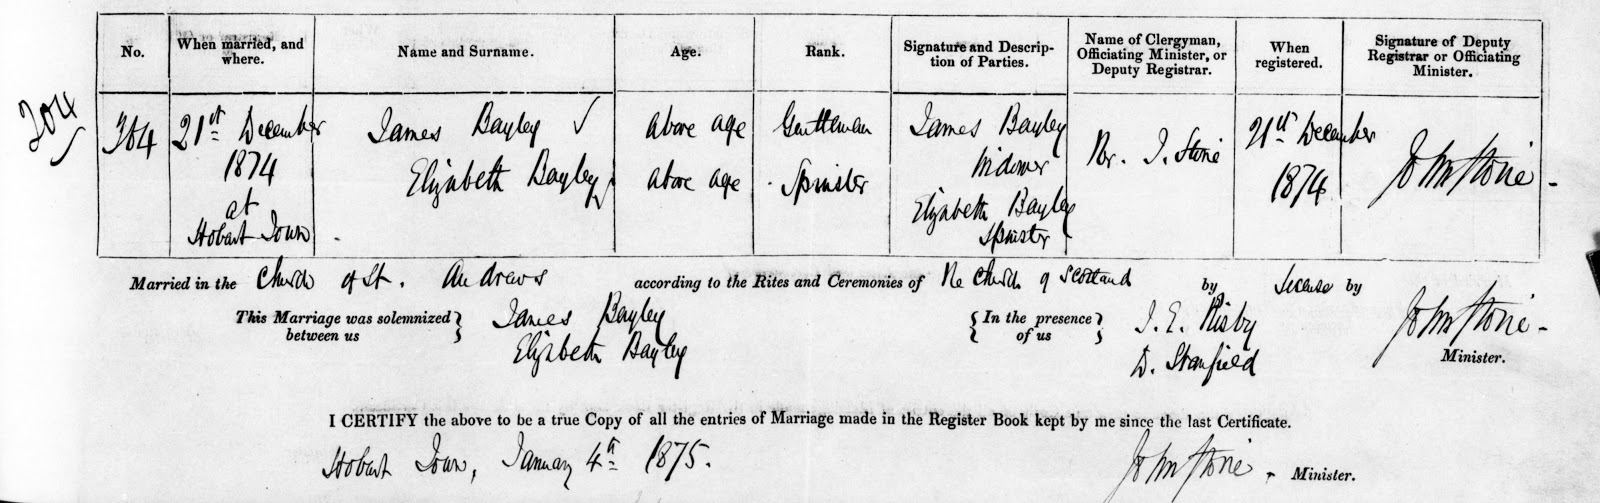 No.
When married, and where.
Name and Surname.
Age.
Rank.
Signature and Descrip-
tion of Parties.
Name of Clergyman,
Officiating Minister, or
Deputy Registrar.
When
registered.
Signature of Deputy
Registrar or Officiating
Minister.
204
304
21st December
1874
at
Hobart Town
James Bayley
Elizabeth Bayley
above age
above age
Gentleman
Spinster
James Bayley
Widower
Elizabeth Bayley
Spinster
J. Storie
21st December
1874
John Storie
Married in the Church of St. Andrews according to the Rites and Ceremonies of the Church of Scotland by License by
This Marriage was solemnized
between us
James Bayley
Elizabeth Bayley
In the presence
of us
J. E. Risby
D. Stanfield
John Storie
Minister.
I CERTIFY the above to be a true Copy of all the entries of Marriage made in the Register Book kept by me since the last Certificate.
Hobart Town, January 4th 1875.
John Storie. Minister.